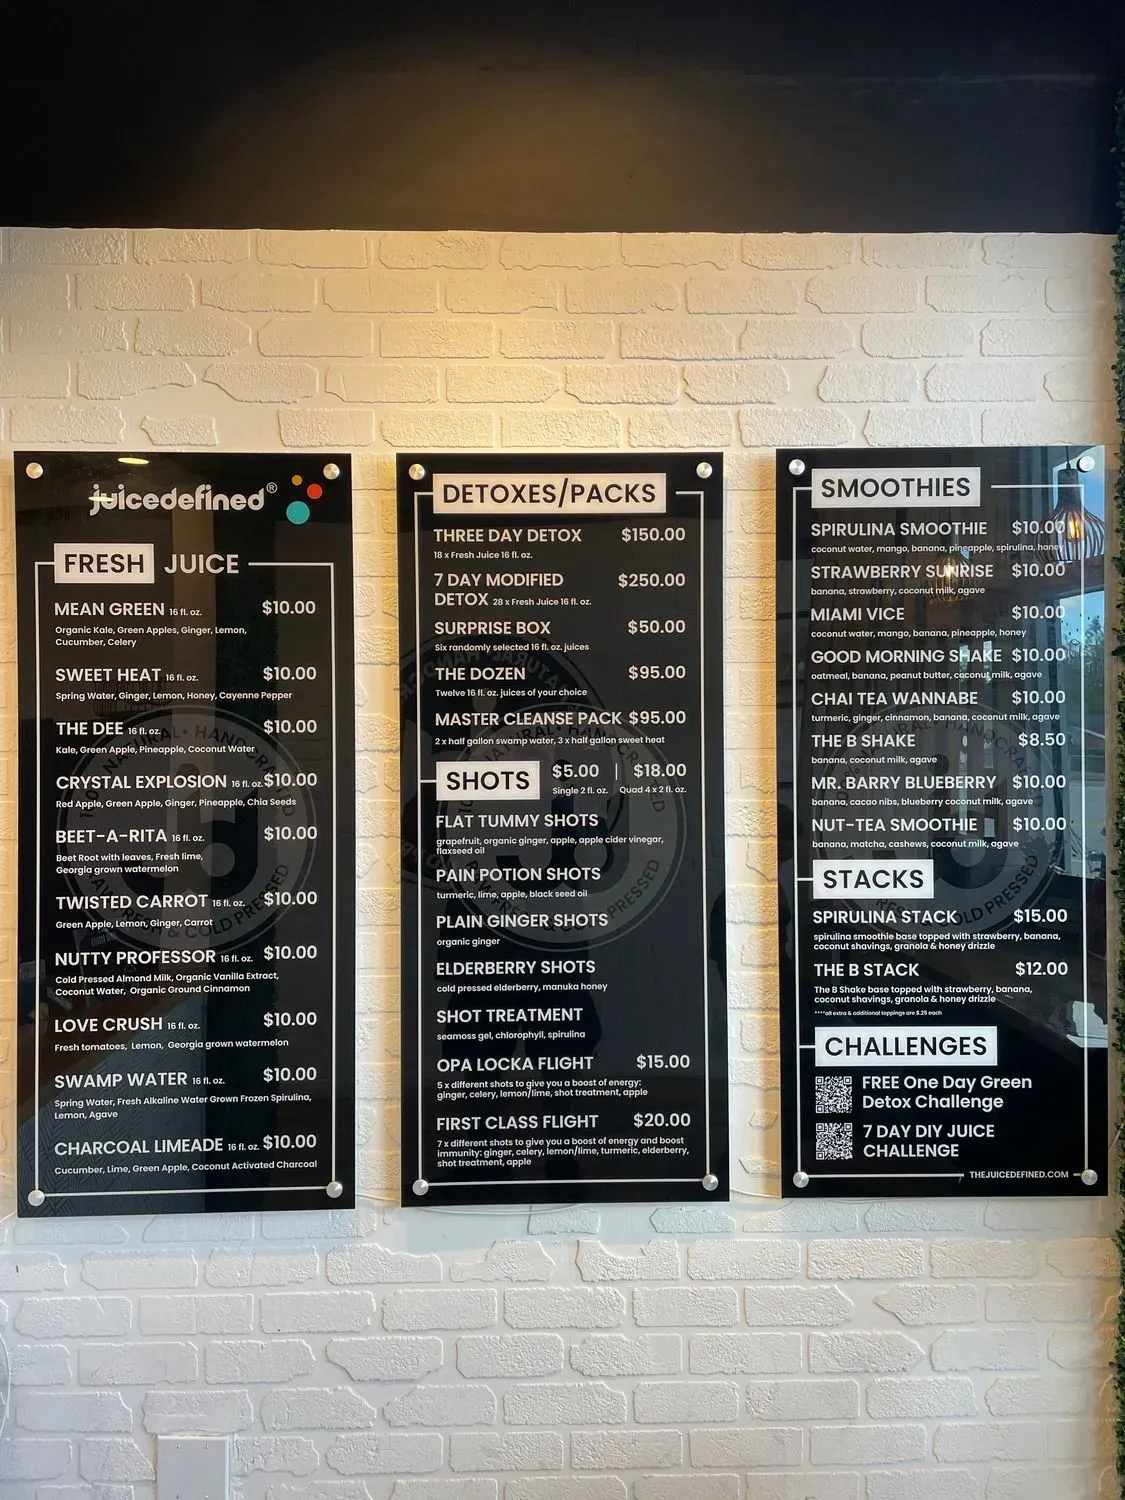 juicedefined®
FRESH JUICE
MEAN GREEN 16 fl. oz. $10.00
Organic Kale, Green Apples, Ginger, Lemon,
Cucumber, Celery
SWEET HEAT 16 fl. oz. $10.00
Spring Water, Ginger, Lemon, Honey, Cayenne Pepper
THE DEE 16 fl. oz. $10.00
Kale, Green Apple, Pineapple, Coconut Water
CRYSTAL EXPLOSION 16 fl. oz. $10.00
Red Apple, Green Apple, Ginger, Pineapple, Chia Seeds
BEET-A-RITA 16 fl. oz. $10.00
Beet Root with leaves, Fresh lime,
Georgia grown watermelon
TWISTED CARROT 16 fl. oz. $10.00
Green Apple, Lemon, Ginger, Carrot
NUTTY PROFESSOR 16 fl. oz. $10.00
Cold Pressed Almond Milk, Organic Vanilla Extract,
Coconut Water, Organic Ground Cinnamon
LOVE CRUSH 16 fl. oz. $10.00
Fresh tomatoes, Lemon, Georgia grown watermelon
SWAMP WATER 16 fl. oz. $10.00
Spring Water, Fresh Alkaline Water Grown Frozen Spirulina,
Lemon, Agave
CHARCOAL LIMEADE 16 fl. oz. $10.00
Cucumber, Lime, Green Apple, Coconut Activated Charcoal
DETOXES/PACKS
THREE DAY DETOX $150.00
18 x Fresh Juice 16 fl. oz.
7 DAY MODIFIED $250.00
DETOX 28 x Fresh Juice 16 fl. oz.
SURPRISE BOX $50.00
Six randomly selected 16 fl. oz. juices
THE DOZEN $95.00
Twelve 16 fl. oz. juices of your choice
MASTER CLEANSE PACK $95.00
2 x half gallon swamp water, 3 x half gallon sweet heat
SHOTS $5.00 | $18.00
Single 2 fl. oz. Quad 4 x 2 fl. oz.
FLAT TUMMY SHOTS
grapefruit, organic ginger, apple, apple cider vinegar,
flaxseed oil
PAIN POTION SHOTS
turmeric, lime, apple, black seed oil
PLAIN GINGER SHOTS
organic ginger
ELDERBERRY SHOTS
cold pressed elderberry, manuka honey
SHOT TREATMENT
seamoss gel, chlorophyll, spirulina
OPA LOCKA FLIGHT $15.00
5 x different shots to give you a boost of energy:
ginger, celery, lemon/lime, shot treatment, apple
FIRST CLASS FLIGHT $20.00
7 x different shots to give you a boost of energy and boost
immunity: ginger, celery, lemon/lime, turmeric, elderberry,
shot treatment, apple
SMOOTHIES
SPIRULINA SMOOTHIE $10.00
coconut water, mango, banana, pineapple, spirulina, honey
STRAWBERRY SUNRISE $10.00
banana, strawberry, coconut milk, agave
MIAMI VICE $10.00
coconut water, mango, banana, pineapple, honey
GOOD MORNING SHAKE $10.00
oatmeal, banana, peanut butter, coconut milk, agave
CHAI TEA WANNABE $10.00
turmeric, ginger, cinnamon, banana, coconut milk, agave
THE B SHAKE $8.50
banana, coconut milk, agave
MR. BARRY BLUEBERRY $10.00
banana, cacao nibs, blueberry coconut milk, agave
NUT-TEA SMOOTHIE $10.00
banana, matcha, cashews, coconut milk, agave
STACKS
SPIRULINA STACK $15.00
spirulina smoothie base topped with strawberry, banana,
coconut shavings, granola & honey drizzle
THE B STACK $12.00
The B Shake base topped with strawberry, banana,
coconut shavings, granola & honey drizzle
****all extra & additional toppings are $.25 each
CHALLENGES
FREE One Day Green
Detox Challenge
7 DAY DIY JUICE
CHALLENGE
THEJUICEDEFINED.COM